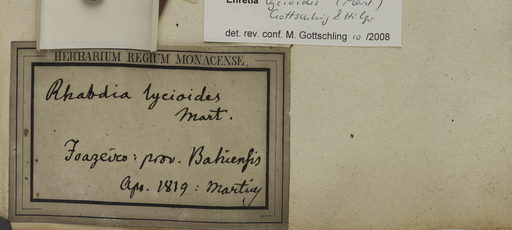 Rhretia lycioides (Mart.)
Gottschling & Hilger
det. rev. conf. M. Gottschling 10 /2008
HERBARIUM REGIUM MONACENSE.
Rhabdia lycioides
Mart.
Joazeiro: prov. Bahiensis
Apr. 1819: Martius